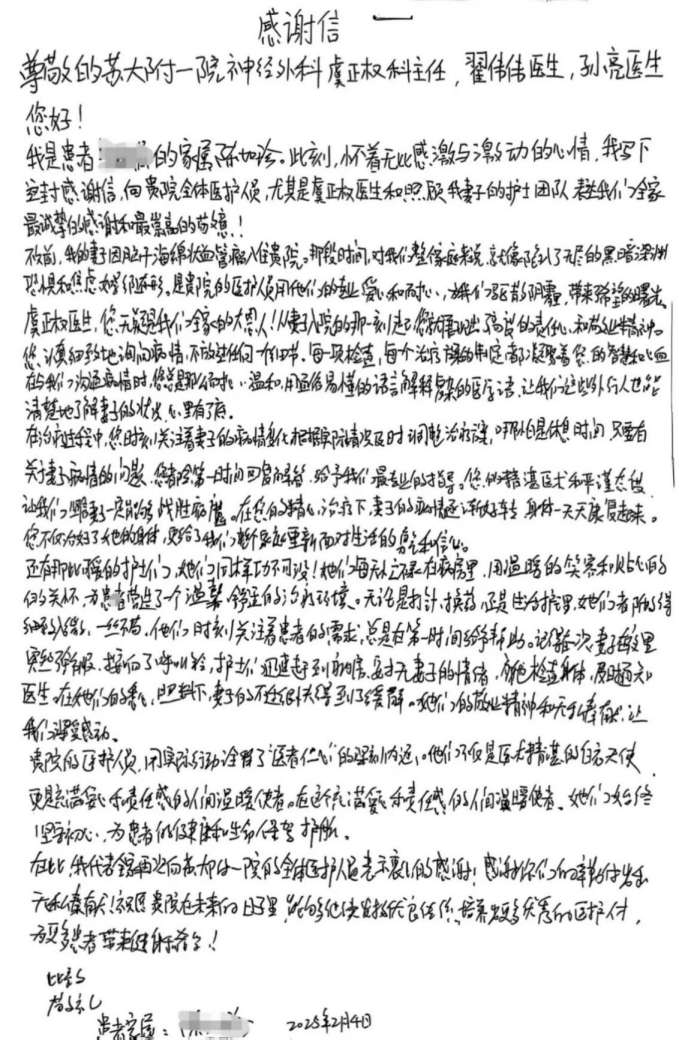 感谢信 一
尊敬的苏大附一院神经外科虞正权科主任，翟伟伟医生，孙亮医生
您好！
我是患者 的家属陈如珍。此刻，怀着无比感激与激动的心情，我写下
这封感谢信，向贵院全体医护人员，尤其是虞正权医生和照顾我妻子的护士团队表达我们全家
最诚挚的感谢和最崇高的敬意！
不久前，我的妻子因脑干海绵状血管瘤入住贵院。那段时间，对我们整个家庭来说，就像陷入了无尽的黑暗深渊
恐惧和焦虑如影随形。是贵院的医护人员用他们的专业、爱心和耐心，为我们驱散阴霾，带来希望的曙光。
虞正权医生，您无疑是我们全家的大恩人！从妻子入院的那一刻起，您就展现出了高度的责任心和敬业精神。
您认真细致地询问病情，不放过任何一个细节。每一项检查，每个治疗方案的制定都凝聚着您的智慧和心血
在与我们沟通病情时，您总是那么耐心、温和，用通俗易懂的语言解释复杂的医学术语，让我们这些外行人也能
清楚地了解妻子的状况，心里有了底。
在治疗过程中，您时刻关注着妻子的病情变化，根据实际情况及时调整治疗方案，哪怕是休息时间，只要有
关于妻子病情的问题，您都会第一时间回复解答，给予我们最专业的指导。您的精湛医术和严谨态度
让我们坚信妻子一定能够战胜病魔。在您的精心治疗下，妻子的病情逐渐好转，身体一天天康复起来。
您不仅治好了她的身体，更给了我们整个家庭重新面对生活的勇气和信心。
还有那些可爱的护士们，她们同样功不可没！她们每天忙碌在病房里，用温暖的笑容和贴心的
的关怀，为患者营造了一个温馨舒适的治疗环境。无论是打针、换药，还是生活护理，她们都做得
细致入微，一丝不苟，他们时刻关注着患者的需求，总是在第一时间给予帮助。记得有一次妻子在夜里
突然不舒服，按响了呼叫铃，护士们迅速赶到病房，安抚妻子的情绪，仔细检查身体，及时通知
医生。在她们的悉心照料下，妻子的不适很快得到了缓解。她们的敬业精神和无私奉献，让
我们深受感动。
贵院的医护人员，用实际行动诠释了“医者仁心”的深刻内涵。他们不仅是医术精湛的白衣天使
更是充满爱心和责任感的人间温暖使者。在这个充满爱心和责任感的人间温暖使者。她们始终
坚守初心，为患者的健康和生命保驾护航。
在此，我代表全家再次向苏大附一院的全体医护人员表示衷心的感谢！感谢你们的辛勤付出和
无私奉献！祝愿贵院在未来的日子里，能够继续发扬优良传统，培养更多优秀的医护人员，
为更多患者带来健康和希望！
此致
敬礼
患者家属：
2025年2月4日